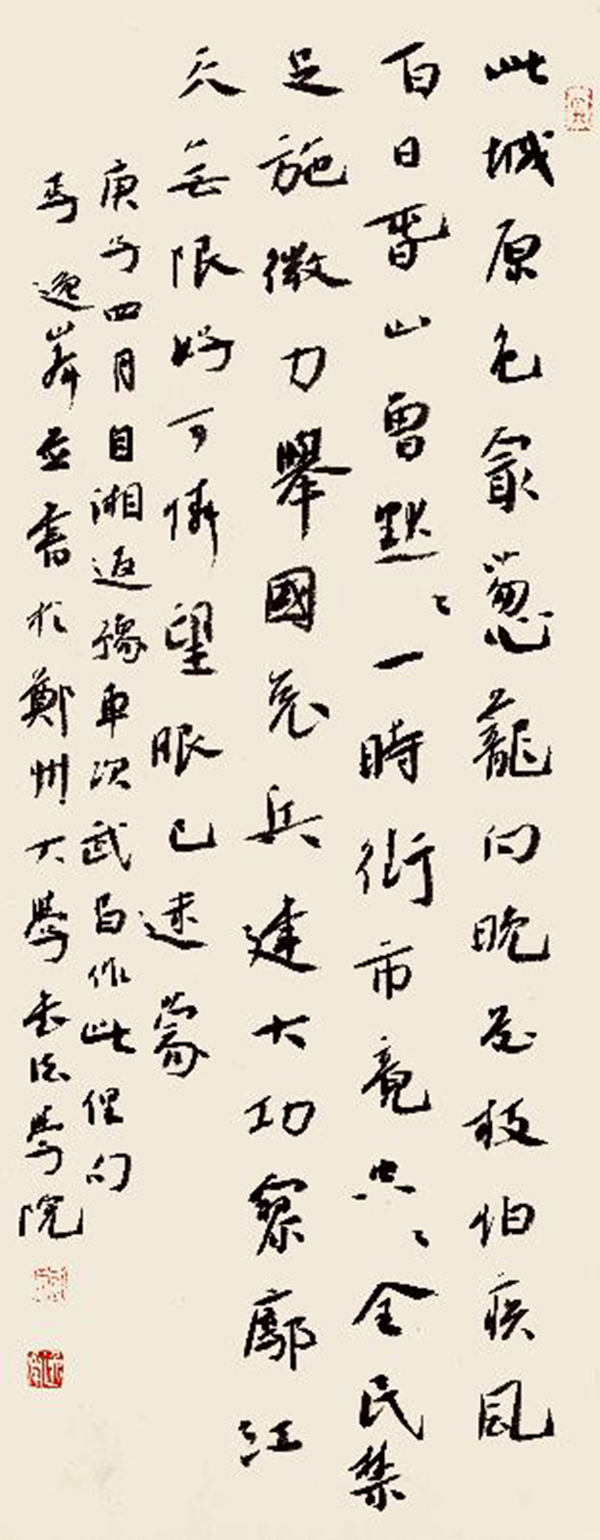 此城原色最葱蘢向晚花枝怕疾風
百日山曾默〻一時街市竟〻全民禁
足施微力舉國哀兵建大功寥廓江
天無限好可憐望眼已迷蒙
庚子四月自湘返豫車次武昌作此俚句
馬逸峯並書於鄭州大學書法學院